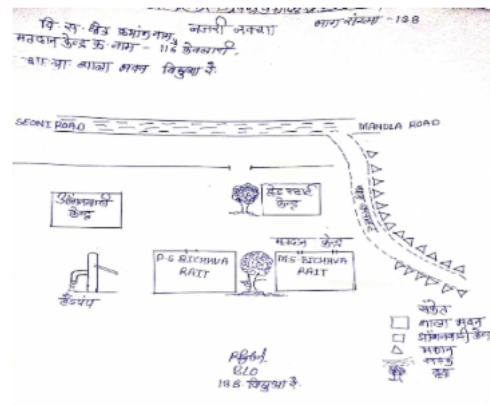 वि. स. क्षेत्र क्रमांक नाम, नजरी नक्शा भाग संख्या - 138
मतदान केन्द्र क. नाम - 116 केवलारी
शा. प्रा. शाला भवन बिछुआ रै.
SEONI ROAD
MANDLA ROAD
आंगनवाड़ी
केन्द्र
हेड स्टार्ट
केन्द्र
मतदान केन्द्र
P.S BICHAVA
RAIT
M.S BICHAVA
RAIT
हैंडपंप
संकेत
शाला भवन
आंगनवाड़ी केन्द्र
मकान
सड़क
वृक्ष
BLO
138 बिछुआ रै.